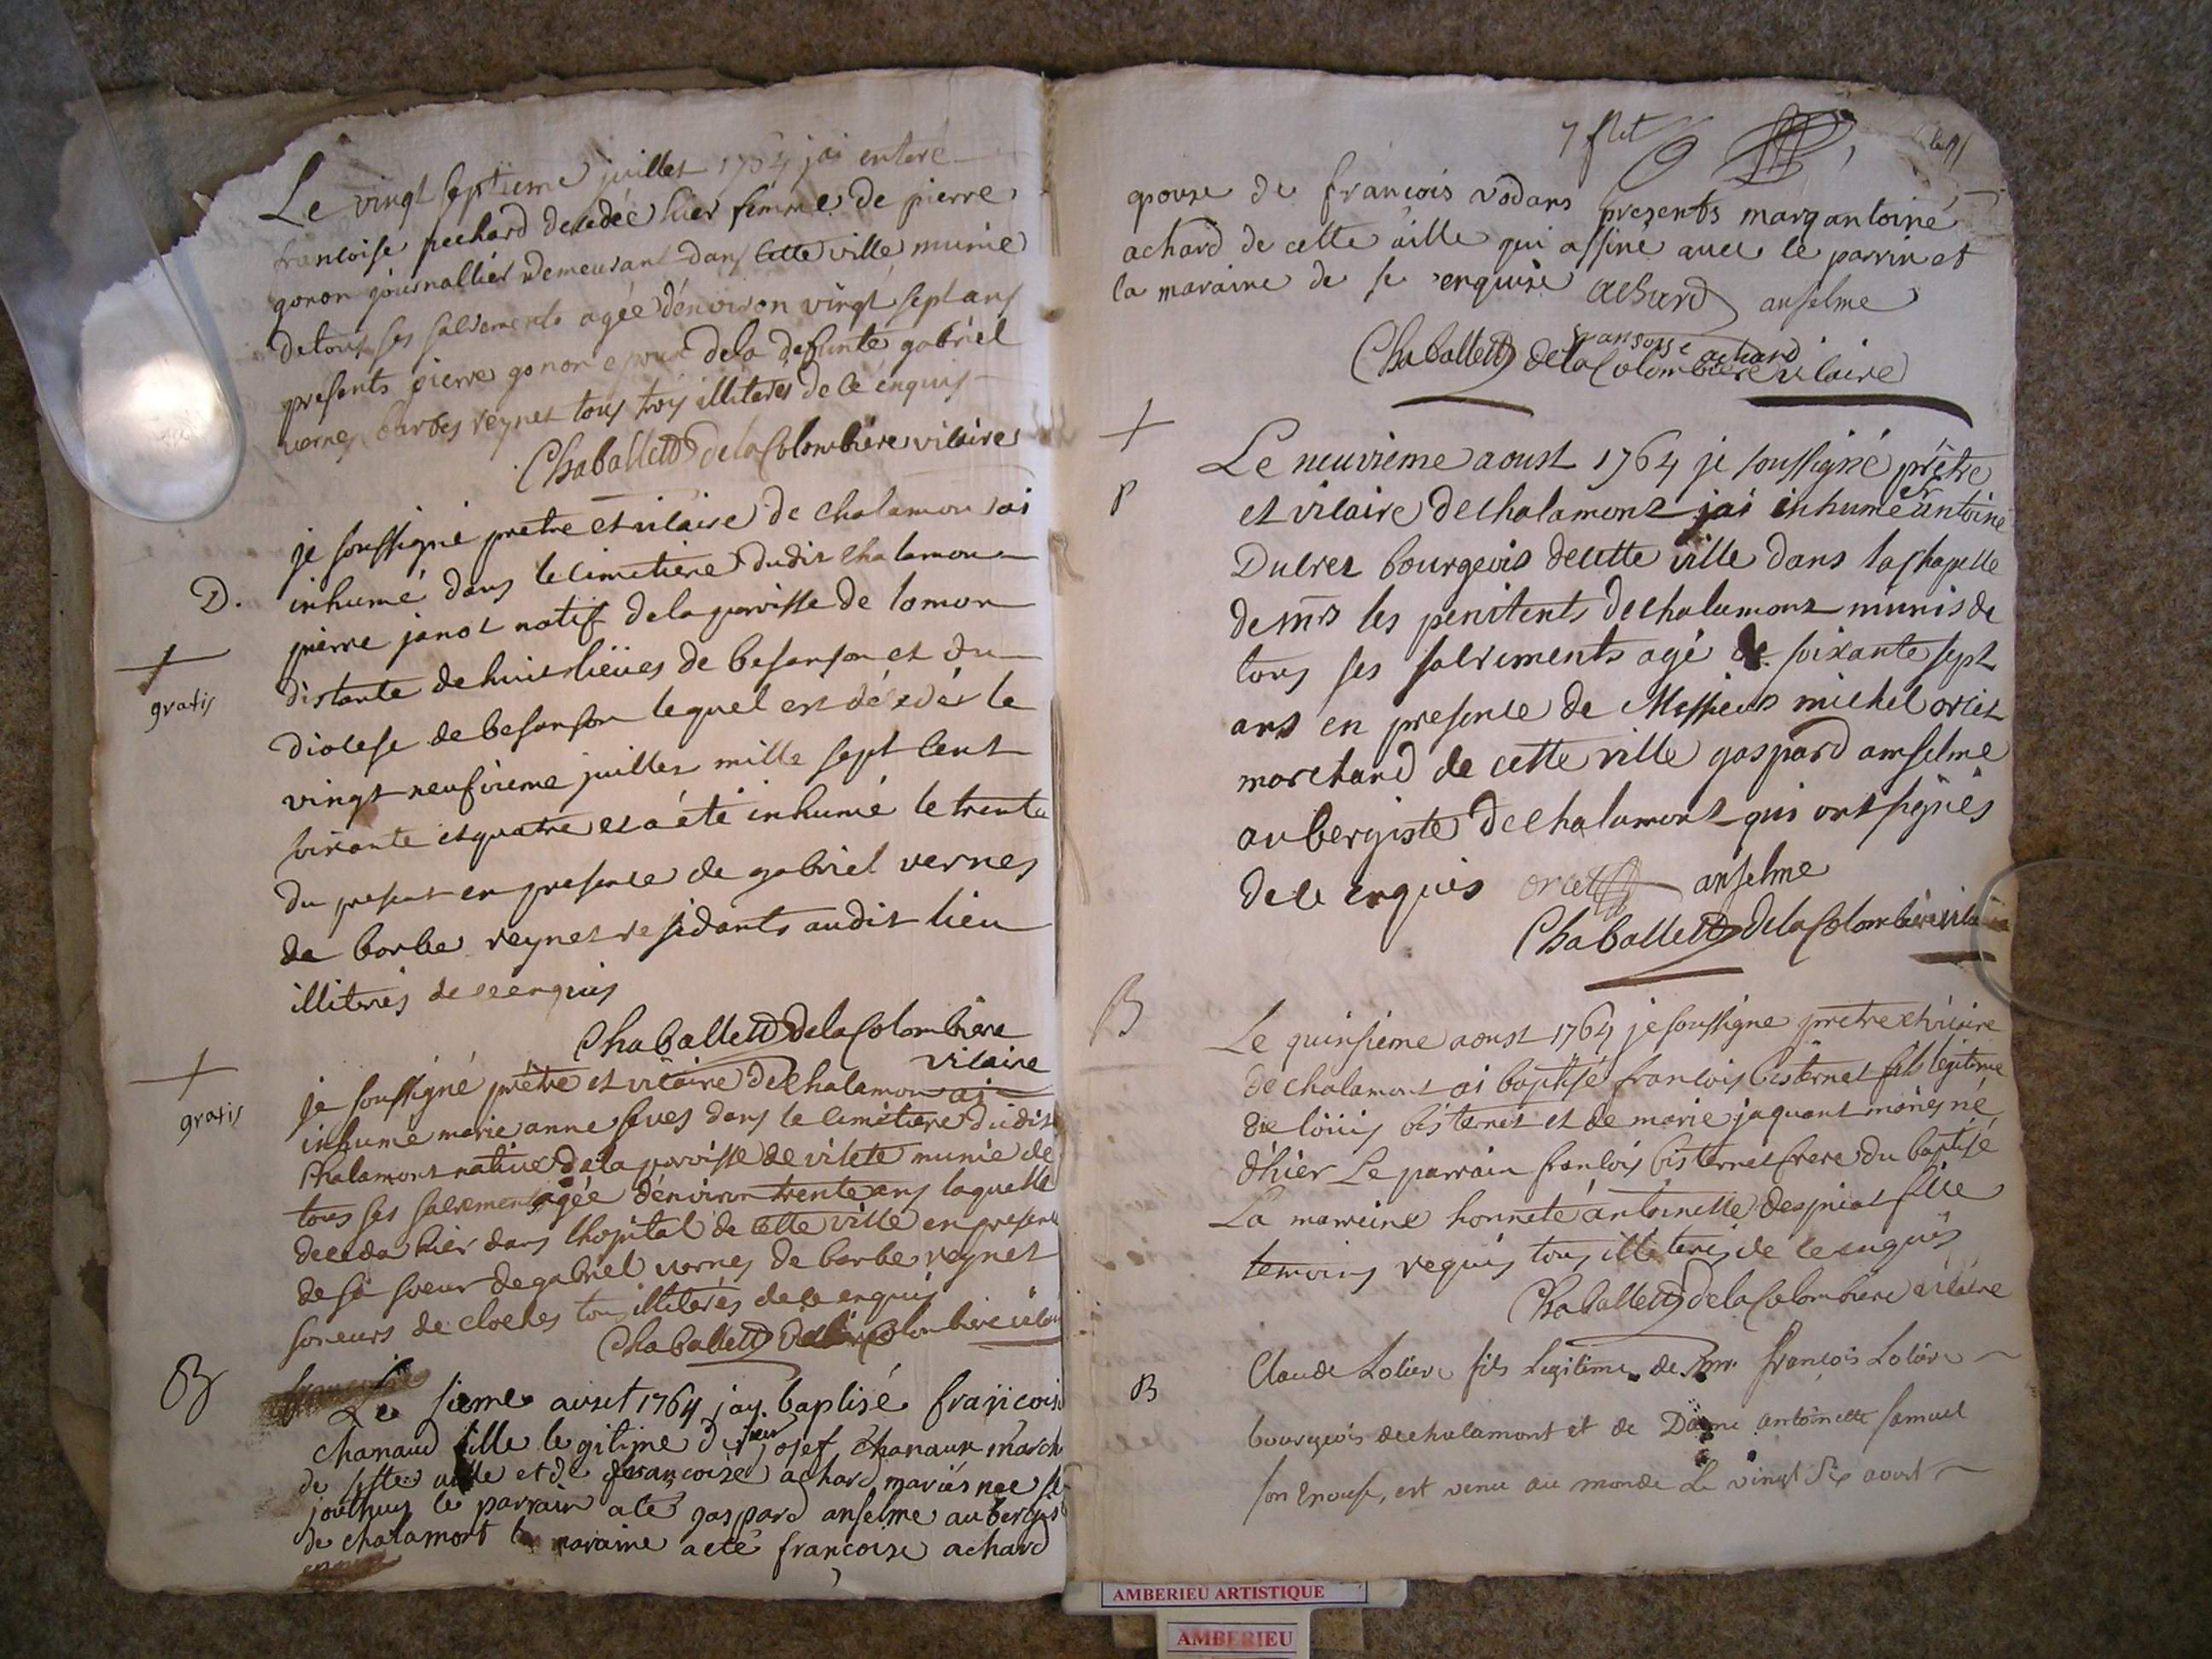 Le vingt septieme juillet 1764 jai enteré
francoise pechard decedée hier femme de pierre
gonon journallier demeurant dans cette ville munie
de tous ses sacrements agée d'environ vingt sept ans
presents pierre gonon epoux de la defunte gabriel
vernes barbes reynet tous trois illiterés de ce enquis
Chaballet de la Colombiere vicaire
je soussigné pretre et vicaire de chalamon jai
D. inhumé dans le cimetiere dudit chalamon
pierre janot natif de la parroisse de lomon
distante de huit lieües de besanson et du
gratis
diocese de besanson lequel est décédés le
vingt neufvieme juillet mille sept cent
soixante et quatre et a été inhumé le trente
du present en presence de gabriel vernes
de barbe reynet residants audit lieu
illiterés de ce enquis
Chaballet de la Colombiere
vicaire
je soussigné prêtre et vicaire de Chalamon ai
gratis
inhumé marie anne seves dans le cimetiere dudit
Chalamont native de la parroisse de vilete munie de
tous ses sacrements agée d'environ trente ans laquelle
deceda hier dans l'hopital de cette ville en presence
de sa soeur de gabriel vernes de barbe reynet
soneurs de cloches tous illiterés de ce enquis
Chaballet de la Colombiere
B
Le sieme aust 1764 jay baptisé francoise
chanaud fille legitime de sieur josef chanaux march
de cette ville et de francoise achard mariés nee
jourdhuy le parrain a eté gaspard anselme aubergis
de chalamont la maraine a eté francoise achard
epouse de francois vodans presents marq antoine
achard de cette ville qui a siné avec le parrin et
la maraine de ce enquise achard anselme
fransoise achard
Chaballet de la Colombiere vicaire
Le neuvieme aoust 1764 je soussigné prêtre
P et vicaire de chalamont jai inhumé sr antoine
Ducret bourgeois de cette ville dans la chapelle
de mrs les penitents de chalamont munis de
tous ses sacrements agé de soixante sept
ans en presence de Messieurs michel orcet
marchand de cette ville gaspard amselme
aubergiste de chalamont qui ont signés
de ce enquis orcet anselme
Chaballet de la Colombiere vicaire
B
Le quinsieme aoust 1764 je soussigne pretre et vicaire
de chalamont ai baptisé francois bisternet fils legitime
de loüis bisternet et de marie jaquant mariés né
d'hier Le parrain francois bisternet frere du baptisé
La marreine honnete antoinette despiat fille
temoins requis tous illiterés de ce enquis
Chaballet de la Colombiere vicaire
B
Claude Loliere fils legitime de Mr. françois Loliere
bourgeois de chalamont et de Dame antoinette Samuel
son Epouse, est venu au monde Le vingt Six aout
AMBERIEU ARTISTIQUE
AMBERIEU